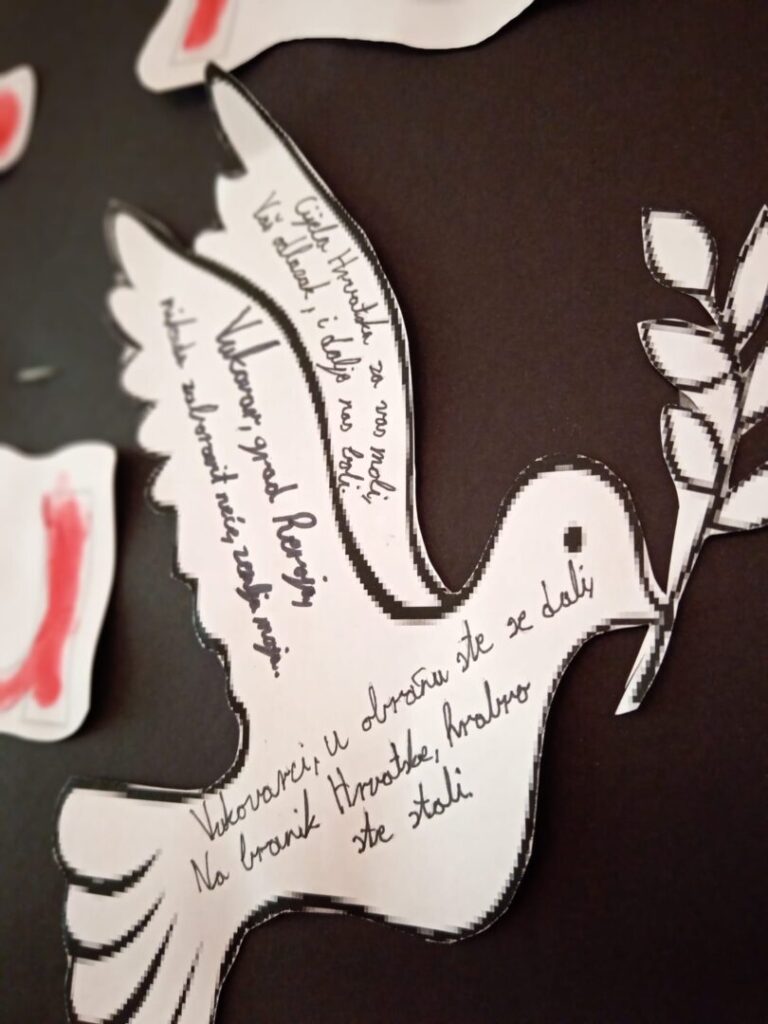 Cijela Hrvatska za vas moli,
Vaš odlazak, i dalje nas boli.
Vukovar, grad Heroja,
nikada zaboravit neće, zemlja moja.
Vukovarci, u obranu ste se dali,
Na branik Hrvatske, hrabro
ste stali.